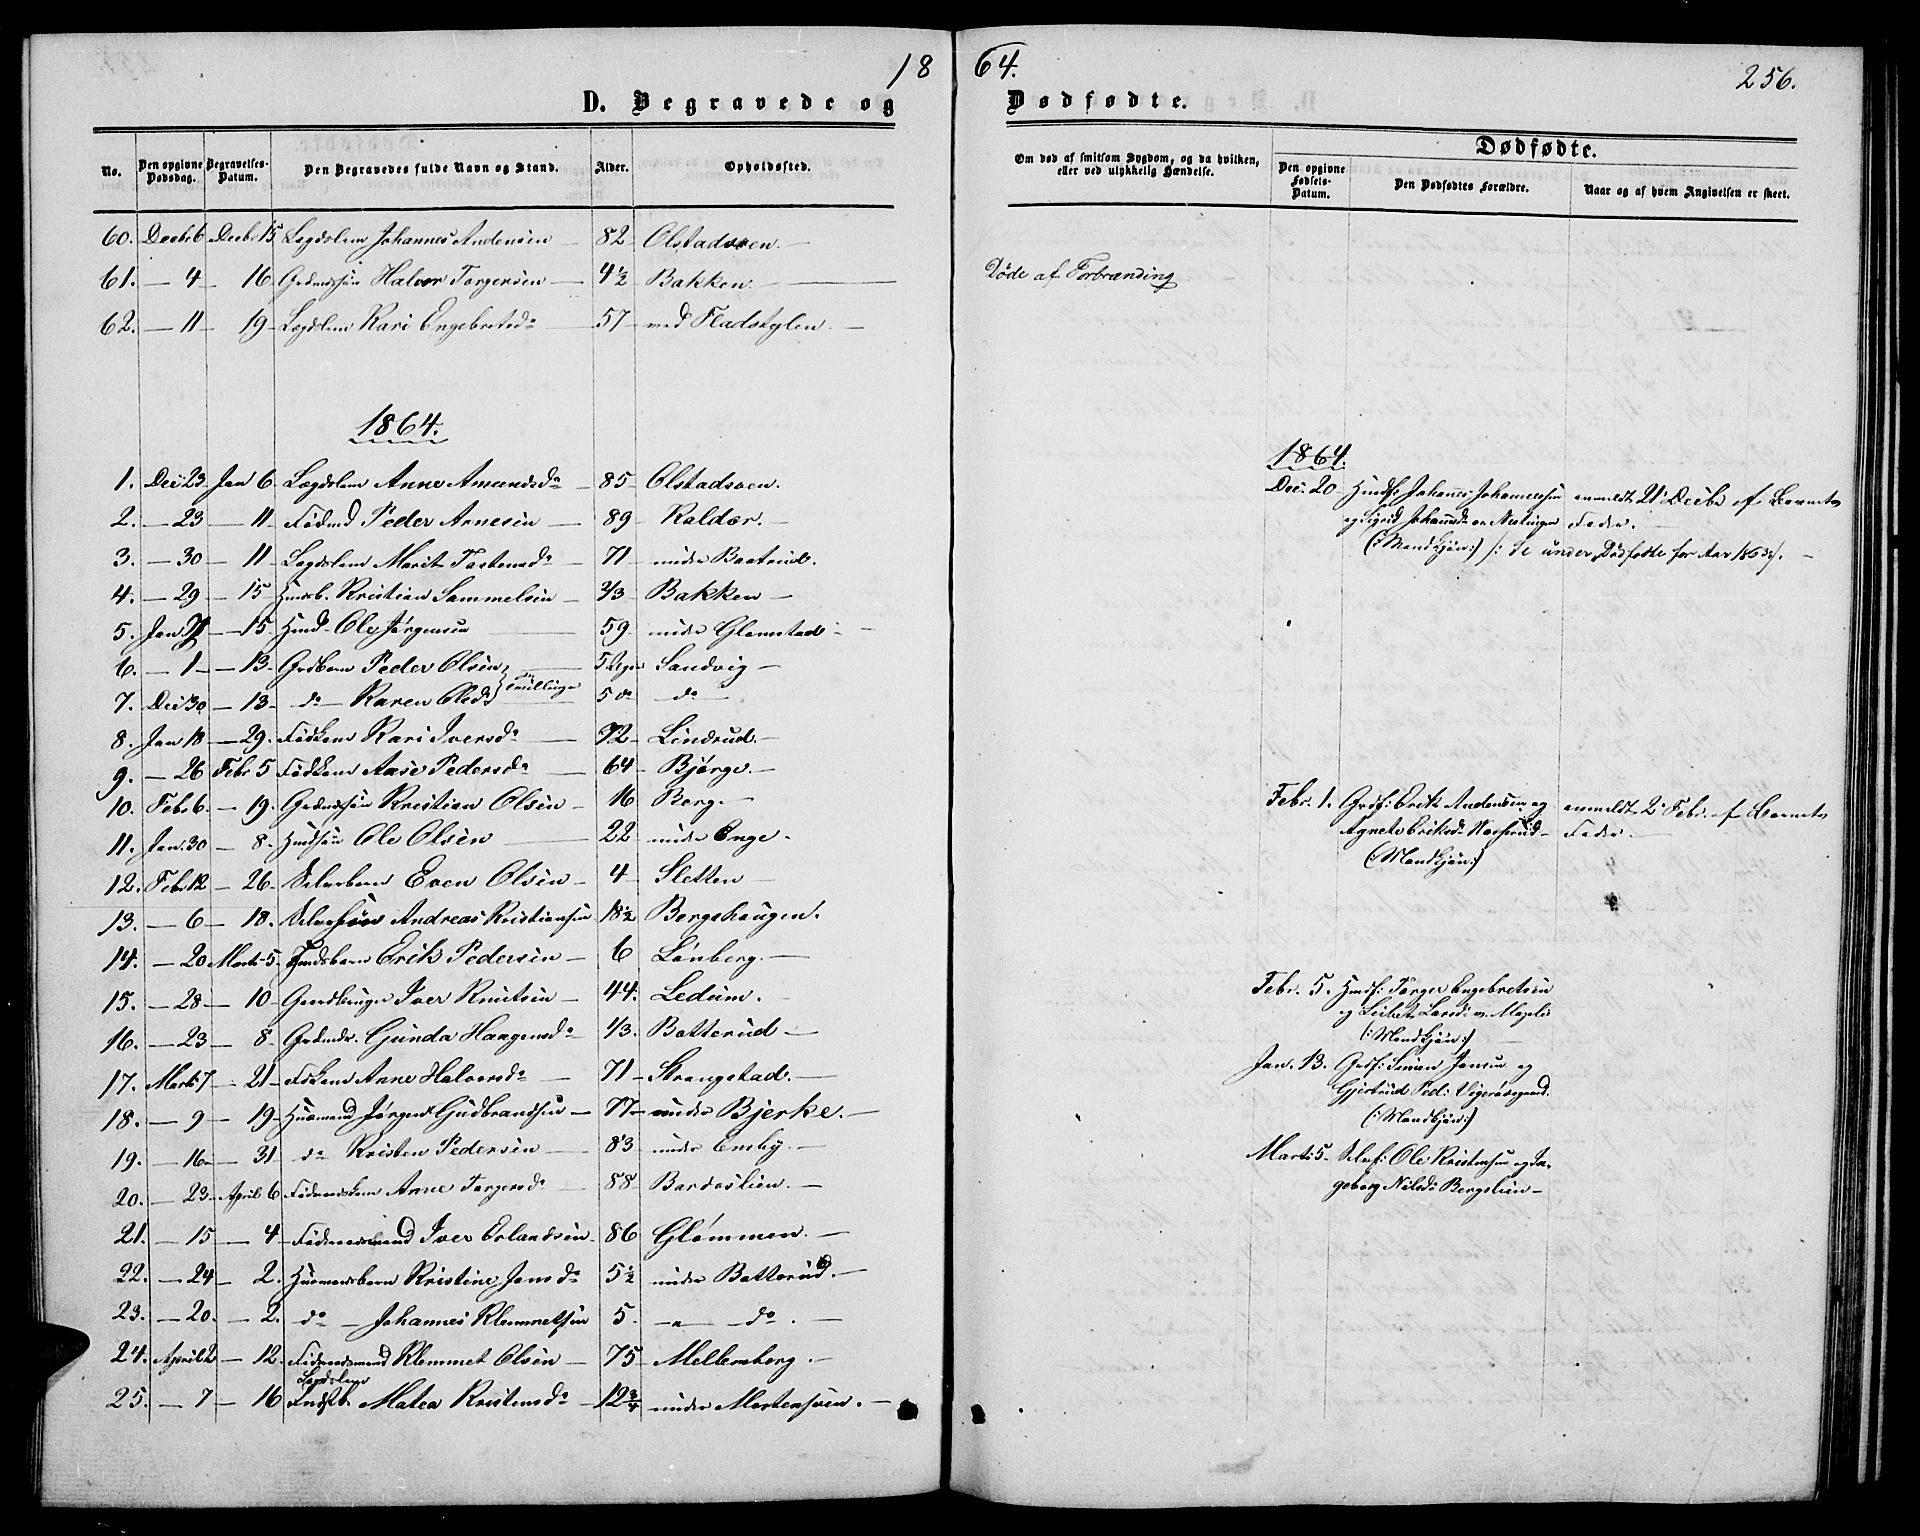 18 64. 256.
D. Begravede og Dødfødte.
No. Den opgivne Dødsdag. Begravelses-Datum. Den Begravedes fulde Navn og Stand. Alder. Opholdssted.
Om død af smitsom Sygdom, og da hvilken, eller ved ulykkelig Hændelse.
Dødfødte.
Den opgivne Fødsels-Datum. Den Dødfødtes Forældre. Naar og af hvem Angivelsen er skeet.
60. Decbr 6 Decbr 15 Lægdslem Johannes Andersen — 82 — Olstadsveen. —
61. — 4 — 16 Halvor Torgersen — 4½ Bakken. — Døde af Forbrænding
62. — 11 — 19 Lægdslem Kari Engebretsdr — 57 — ved Fladstylen. —
1864.
1. Dec: 23 Jan 6. Lægdslem Anne Amundsdr — 85 — Olstadsveen.
2. — 23 — 11 — Fødrd Peder Arnesen — 89 — Kaldor. —
3. — 30 — 11 Lægdslem Marit Tostensdr — 71 — under Baatrud.
4. — 29 — 15 Husb. Kristian Sammelsen — 2/3 — Bakken —
5. Jan — 15. Husmd Ole Jørgensen — 59. under Glamstad —
6. — 1 — — 13 — Grdbarn Peder Olsen — 5 Dage Sandvig —
7. Dec 30 — 13 — do — Karen Olsdr } Tvillinge 5 do — do —
8. Jan 18 — 29. Fødkone Kari Iversdr — 72 — Lindrud. —
9. — 26 Febr 5 Fødkone Aase Pedersdr — 64 — Bjørge. —
10. Febr 6. — 19. Kristian Olsen — 16 Berg. —
11. Jan. 30 — 8. Hussøn Ole Olsen — 22 — under Enge.
12. Febr 12 — 26. Selverbarn Even Olsen — 4 — Sletten —
13. — 6 — 18. Andreas Kristiansen 18½ Bergshaugen.
14. — 20 Marts 5. Husbarn Erik Pedersen — 6 — Lønberg. —
15. — 28 — 10 Gaardbruger Iver Knutsen — 44. Ledum.
16. — 23 — 8 Gunda Haagensdr — 1/3. Batterud —
17. Marts 7 — 21 Fødkone Anne Halvorsdr — 71 — Strangstad. —
18. — 9 — 19. Husmand Jørgen Gudbrandsen — 77 — under Bjerke. —
19. — 16 — — 31 do Kristen Pedersen — 83 — under Emby. —
20. — 23. April 6 Føderaadskone Anne Torgersdr — 88 — Bardoslien. —
21. — 15 — 4 — Føderaadsmand Iver Erlandsen — 86 — Glømmen. —
22. — 24 — 2. Husmandsbarn Kristine Jensdr — 5½ — under Batterud. —
23. — 20. — 2. do — Johannes Klemmetsen 5. — " — do. —
24. April 2 — 12. Føderaadsmand Klemmet Olsen — 75 — Mellemborg. —
25. — 7 — 16 Lægdslem Matea Kristensdr — 12¾ — under Mortensveen. —
1864.
Dec: 20 — Husf: Johannes Johannessen anmeldt 21 Decbr af Barnets
og Sigrid Johannsdr Fader. —
(: Mandkjøn:) /: Se under Dødfødte for Aar 1863 :/. —
Febr. 1. Grdf: Erik Andersen og anmeldt 2 Febr. af Barnets
Agnete Eriksdr — Fader. —
(: Mandkjøn:)
Febr. 5. Husf: Torger Engebretsen
og Larsdr
(: Mandkjøn:)
Jan. 13. Grdf: Simen Jansen og
Gjertrud Ped:
(: Mandkjøn:)
Marts 5 — Selvf: Ole Kristensen og In-
geborg Nilsdr Bergslien —